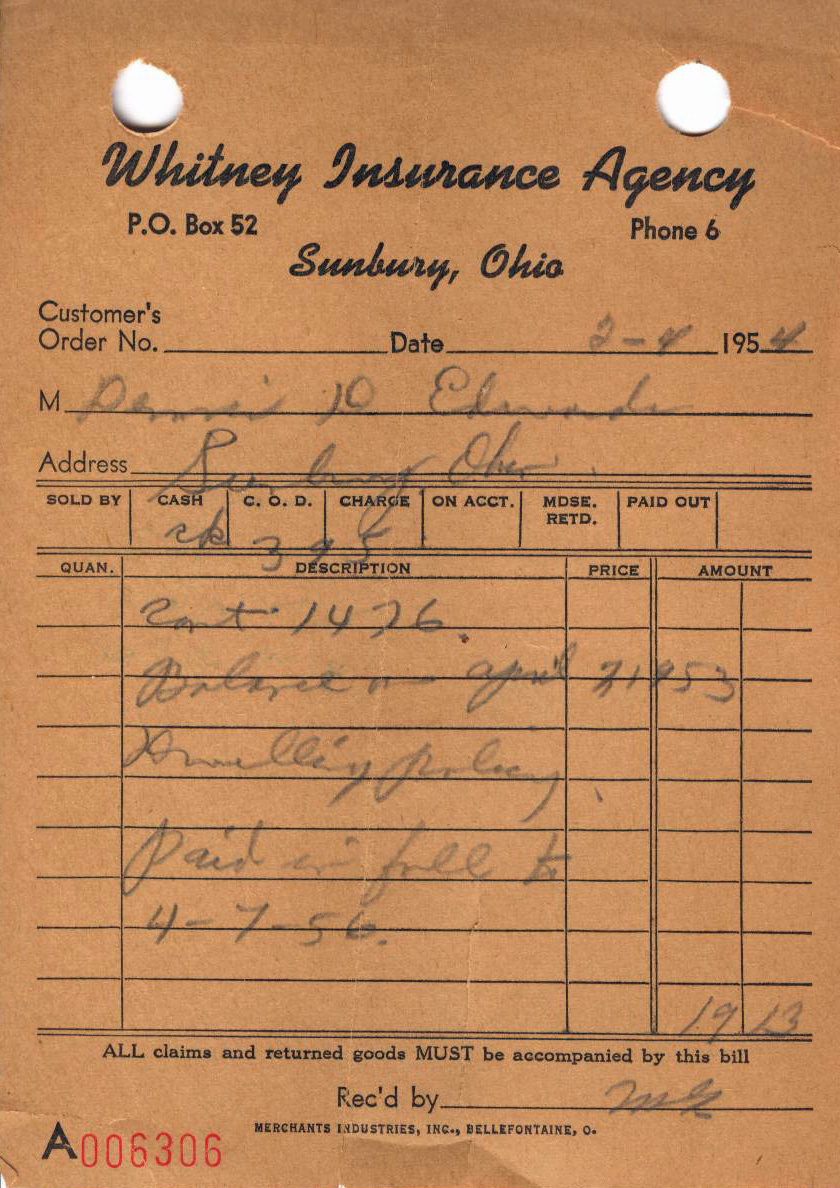 Whitney Insurance Agency
P.O. Box 52 Phone 6
Sunbury, Ohio
Customer's
Order No. Date 2-4 1954
M Dennis D Edwards
Address Sunbury, Ohio
SOLD BY CASH C. O. D. CHARGE ON ACCT. MDSE. RETD. PAID OUT
ck 395
QUAN. DESCRIPTION PRICE AMOUNT
1476
Balance on April 21953
Dwelling policy
Paid in full to
4-7-56.
19 13
ALL claims and returned goods MUST be accompanied by this bill
Rec'd by
MERCHANTS INDUSTRIES, INC., BELLEFONTAINE, O.
A006306